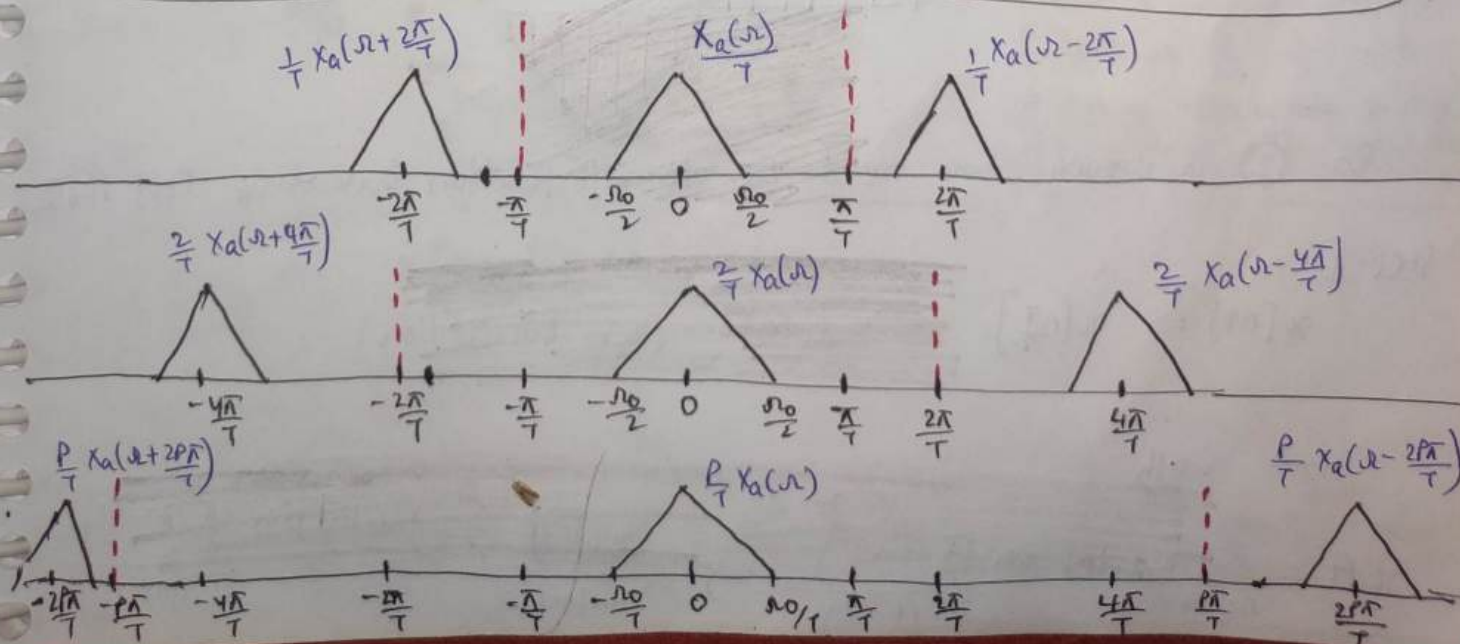 1/T Xa(Ω + 2π/T) Xa(Ω)/T 1/T Xa(Ω - 2π/T)
-2π/T -π/T -Ω0/2 0 Ω0/2 π/T 2π/T
2/T Xa(Ω + 4π/T) 2/T Xa(Ω) 2/T Xa(Ω - 4π/T)
-4π/T -2π/T -π/T -Ω0/2 0 Ω0/2 π/T 2π/T 4π/T
P/T Xa(Ω + 2Pπ/T) P/T Xa(Ω) P/T Xa(Ω - 2Pπ/T)
-2Pπ/T -Pπ/T -4π/T -2π/T -π/T -Ω0/T 0 Ω0/T π/T 2π/T 4π/T Pπ/T 2Pπ/T